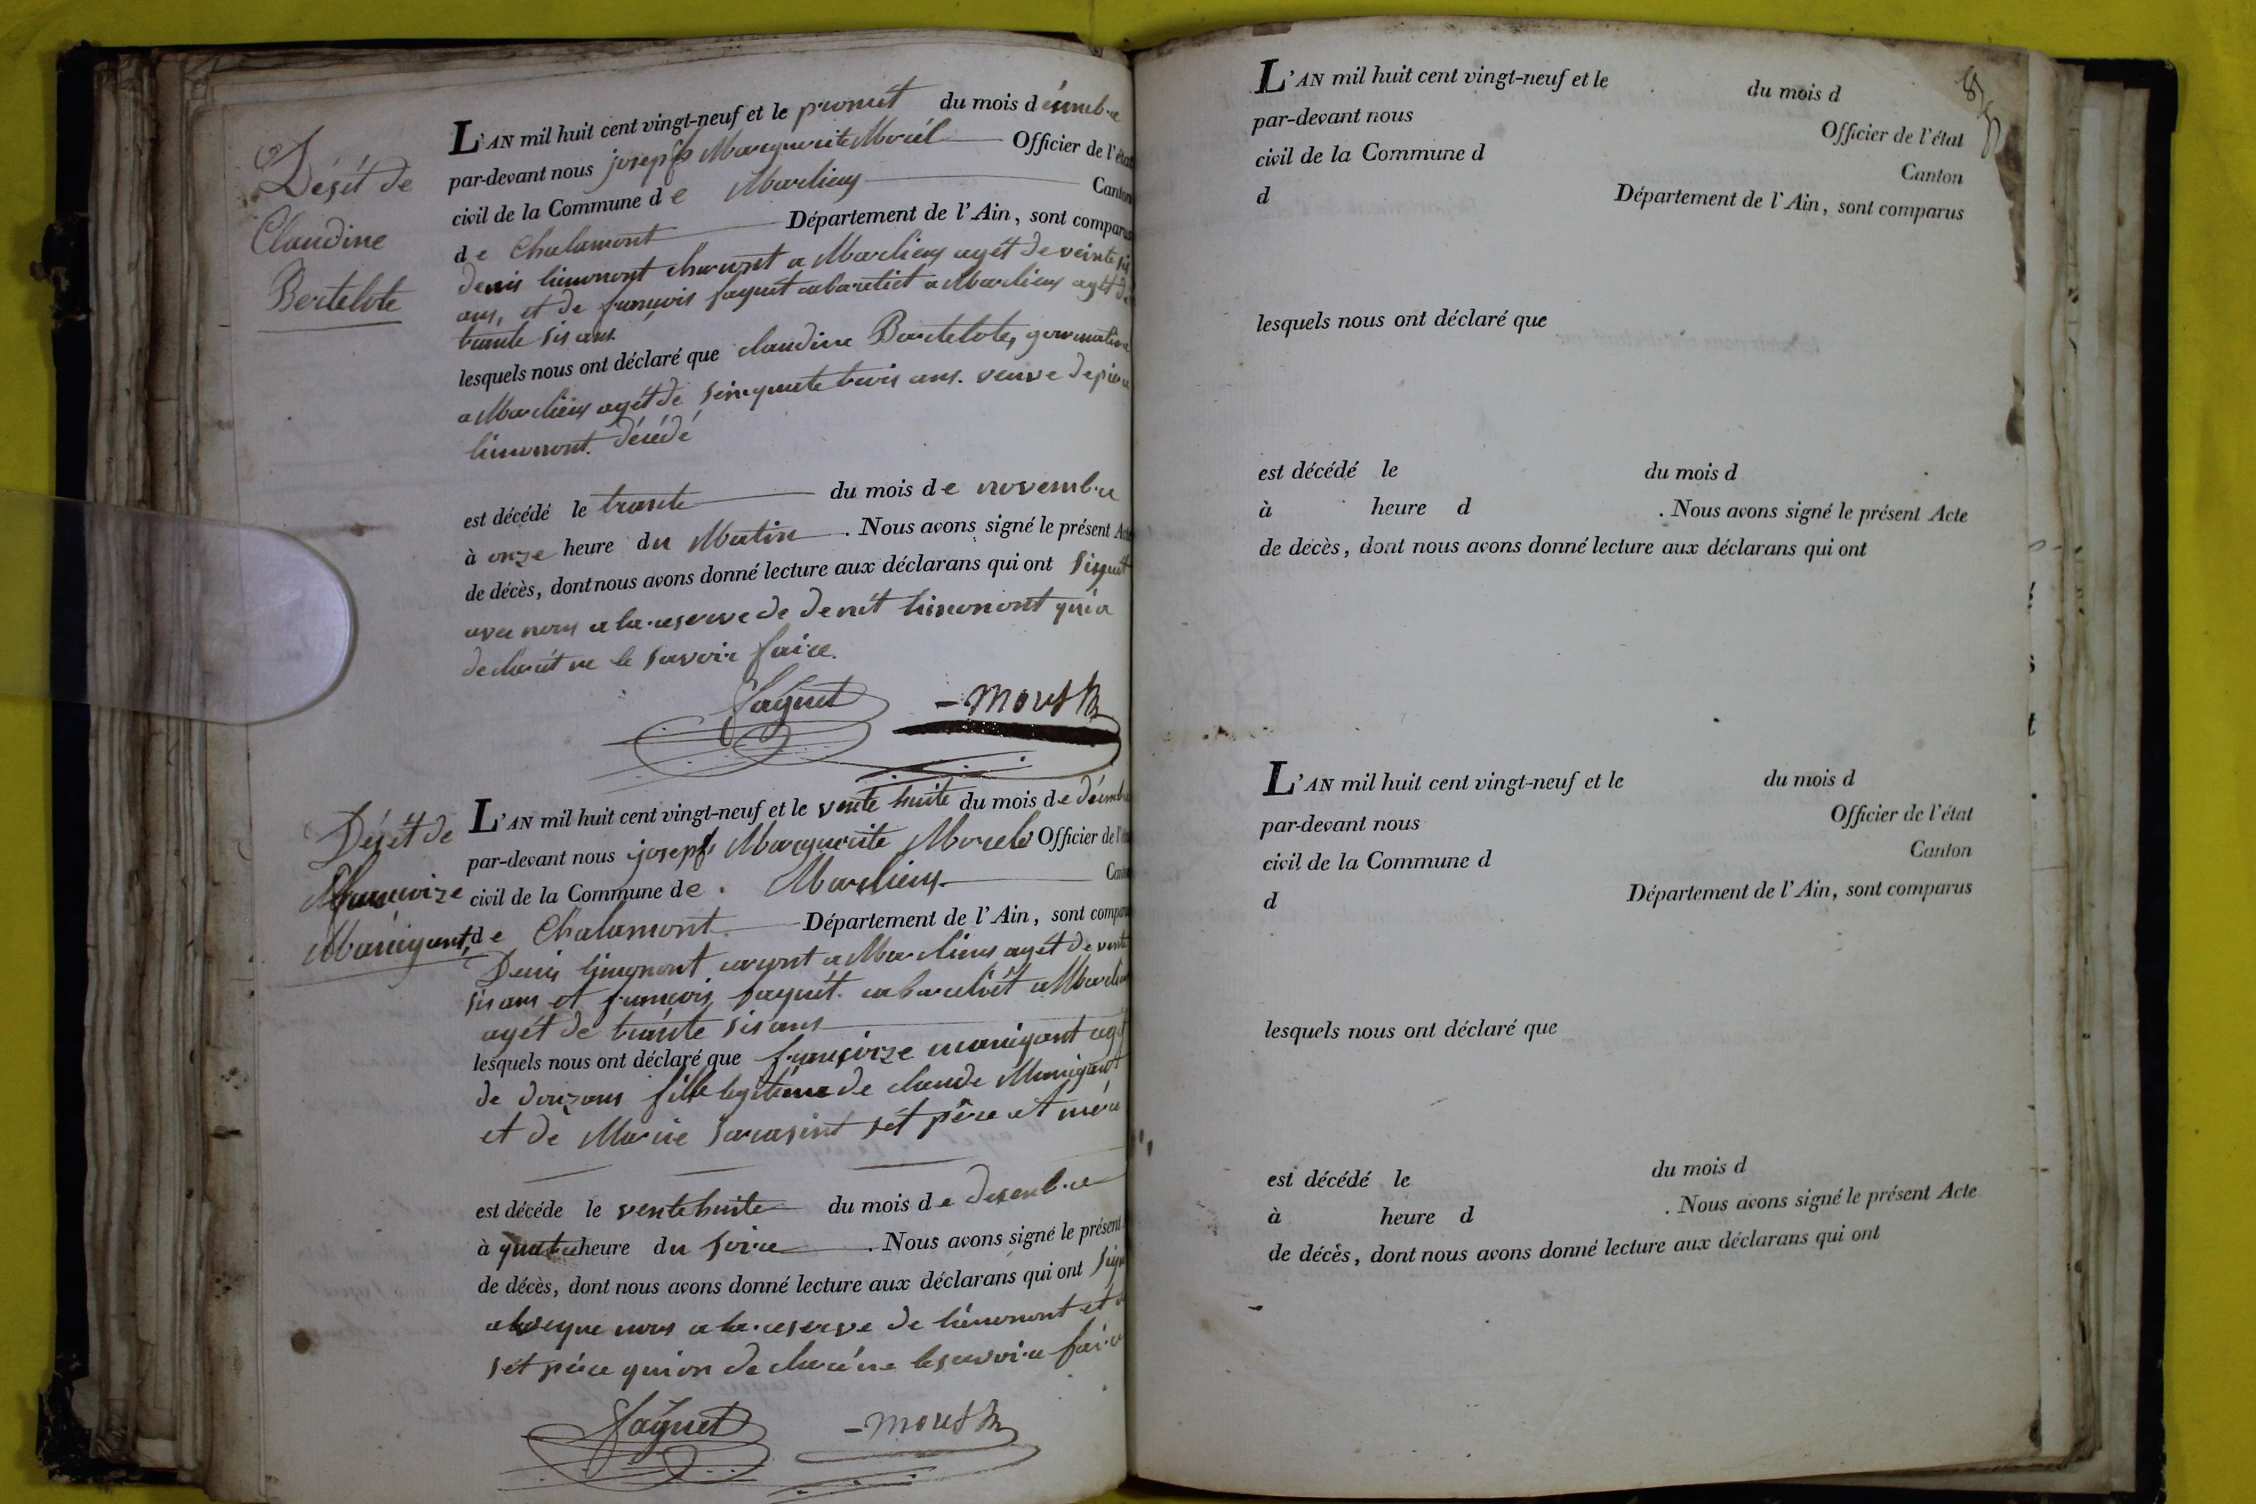 Dését de
Claudine
Bertelote
L'AN mil huit cent vingt-neuf et le premiét du mois d écembre
par-devant nous joseph Marguerite Morél Officier de l'état
civil de la Commune de Marlieux Canton
de Chalamont Département de l'Ain, sont comparus
denis limonont a Marlieux agét de veinte sis
ans, et de françois faguét cabaretiét a Marlieux agét de
trante sis ans
lesquels nous ont déclaré que claudine Bertelote,
a Marlieux agét de sinquante trois ans. veuve de piere
limonont. décédé
est décédé le trante du mois de novembre
à onze heure du Matin . Nous avons signé le présent Acte
de décès, dont nous avons donné lecture aux déclarans qui ont signét
avec nous a la reserve de denit limonont qui a
declarét ne le savoir faire.
faguet morel
Dését de
françoize
Manigant
L'AN mil huit cent vingt-neuf et le vente huite du mois de décembre
par-devant nous joseph Marguerite Morele Officier de l'état
civil de la Commune de Marlieux Canton
de Chalamont. Département de l'Ain, sont comparus
Denis limonont a Marlieux agét de vente
sis ans et françois faguét. cabaretiét a Marlieux
agét de trante sis ans
lesquels nous ont déclaré que françoize manigant agét
de douzans fille legitime de claude Manigant
et de Marie sarasint sét père et mére
est décédé le ventehuite du mois de desembre
à quatre heure du soire . Nous avons signé le présent
de décès, dont nous avons donné lecture aux déclarans qui ont signé
aveque nous a la reserve de limonont et
sét pére qui on declaré ne le savoire faire
faguet morel
L'AN mil huit cent vingt-neuf et le du mois d
par-devant nous Officier de l'état
civil de la Commune d Canton
d Département de l'Ain, sont comparus
lesquels nous ont déclaré que
est décédé le du mois d
à heure d . Nous avons signé le présent Acte
de décès, dont nous avons donné lecture aux déclarans qui ont
L'AN mil huit cent vingt-neuf et le du mois d
par-devant nous Officier de l'état
civil de la Commune d Canton
d Département de l'Ain, sont comparus
lesquels nous ont déclaré que
est décédé le du mois d
à heure d . Nous avons signé le présent Acte
de décès, dont nous avons donné lecture aux déclarans qui ont